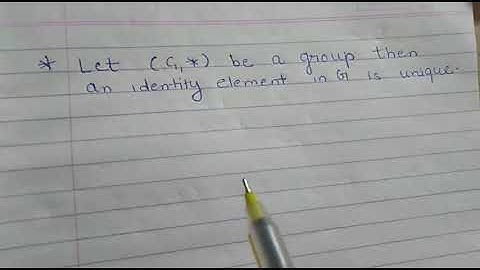 * Let (G, *) be a group then
an identity element in G is unique.